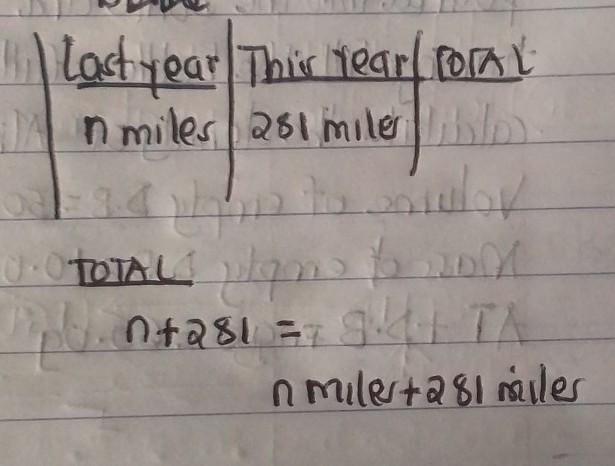 Last year This Year TOTAL
n miles 281 miles
TOTAL
n+281 =
n miles+281 miles